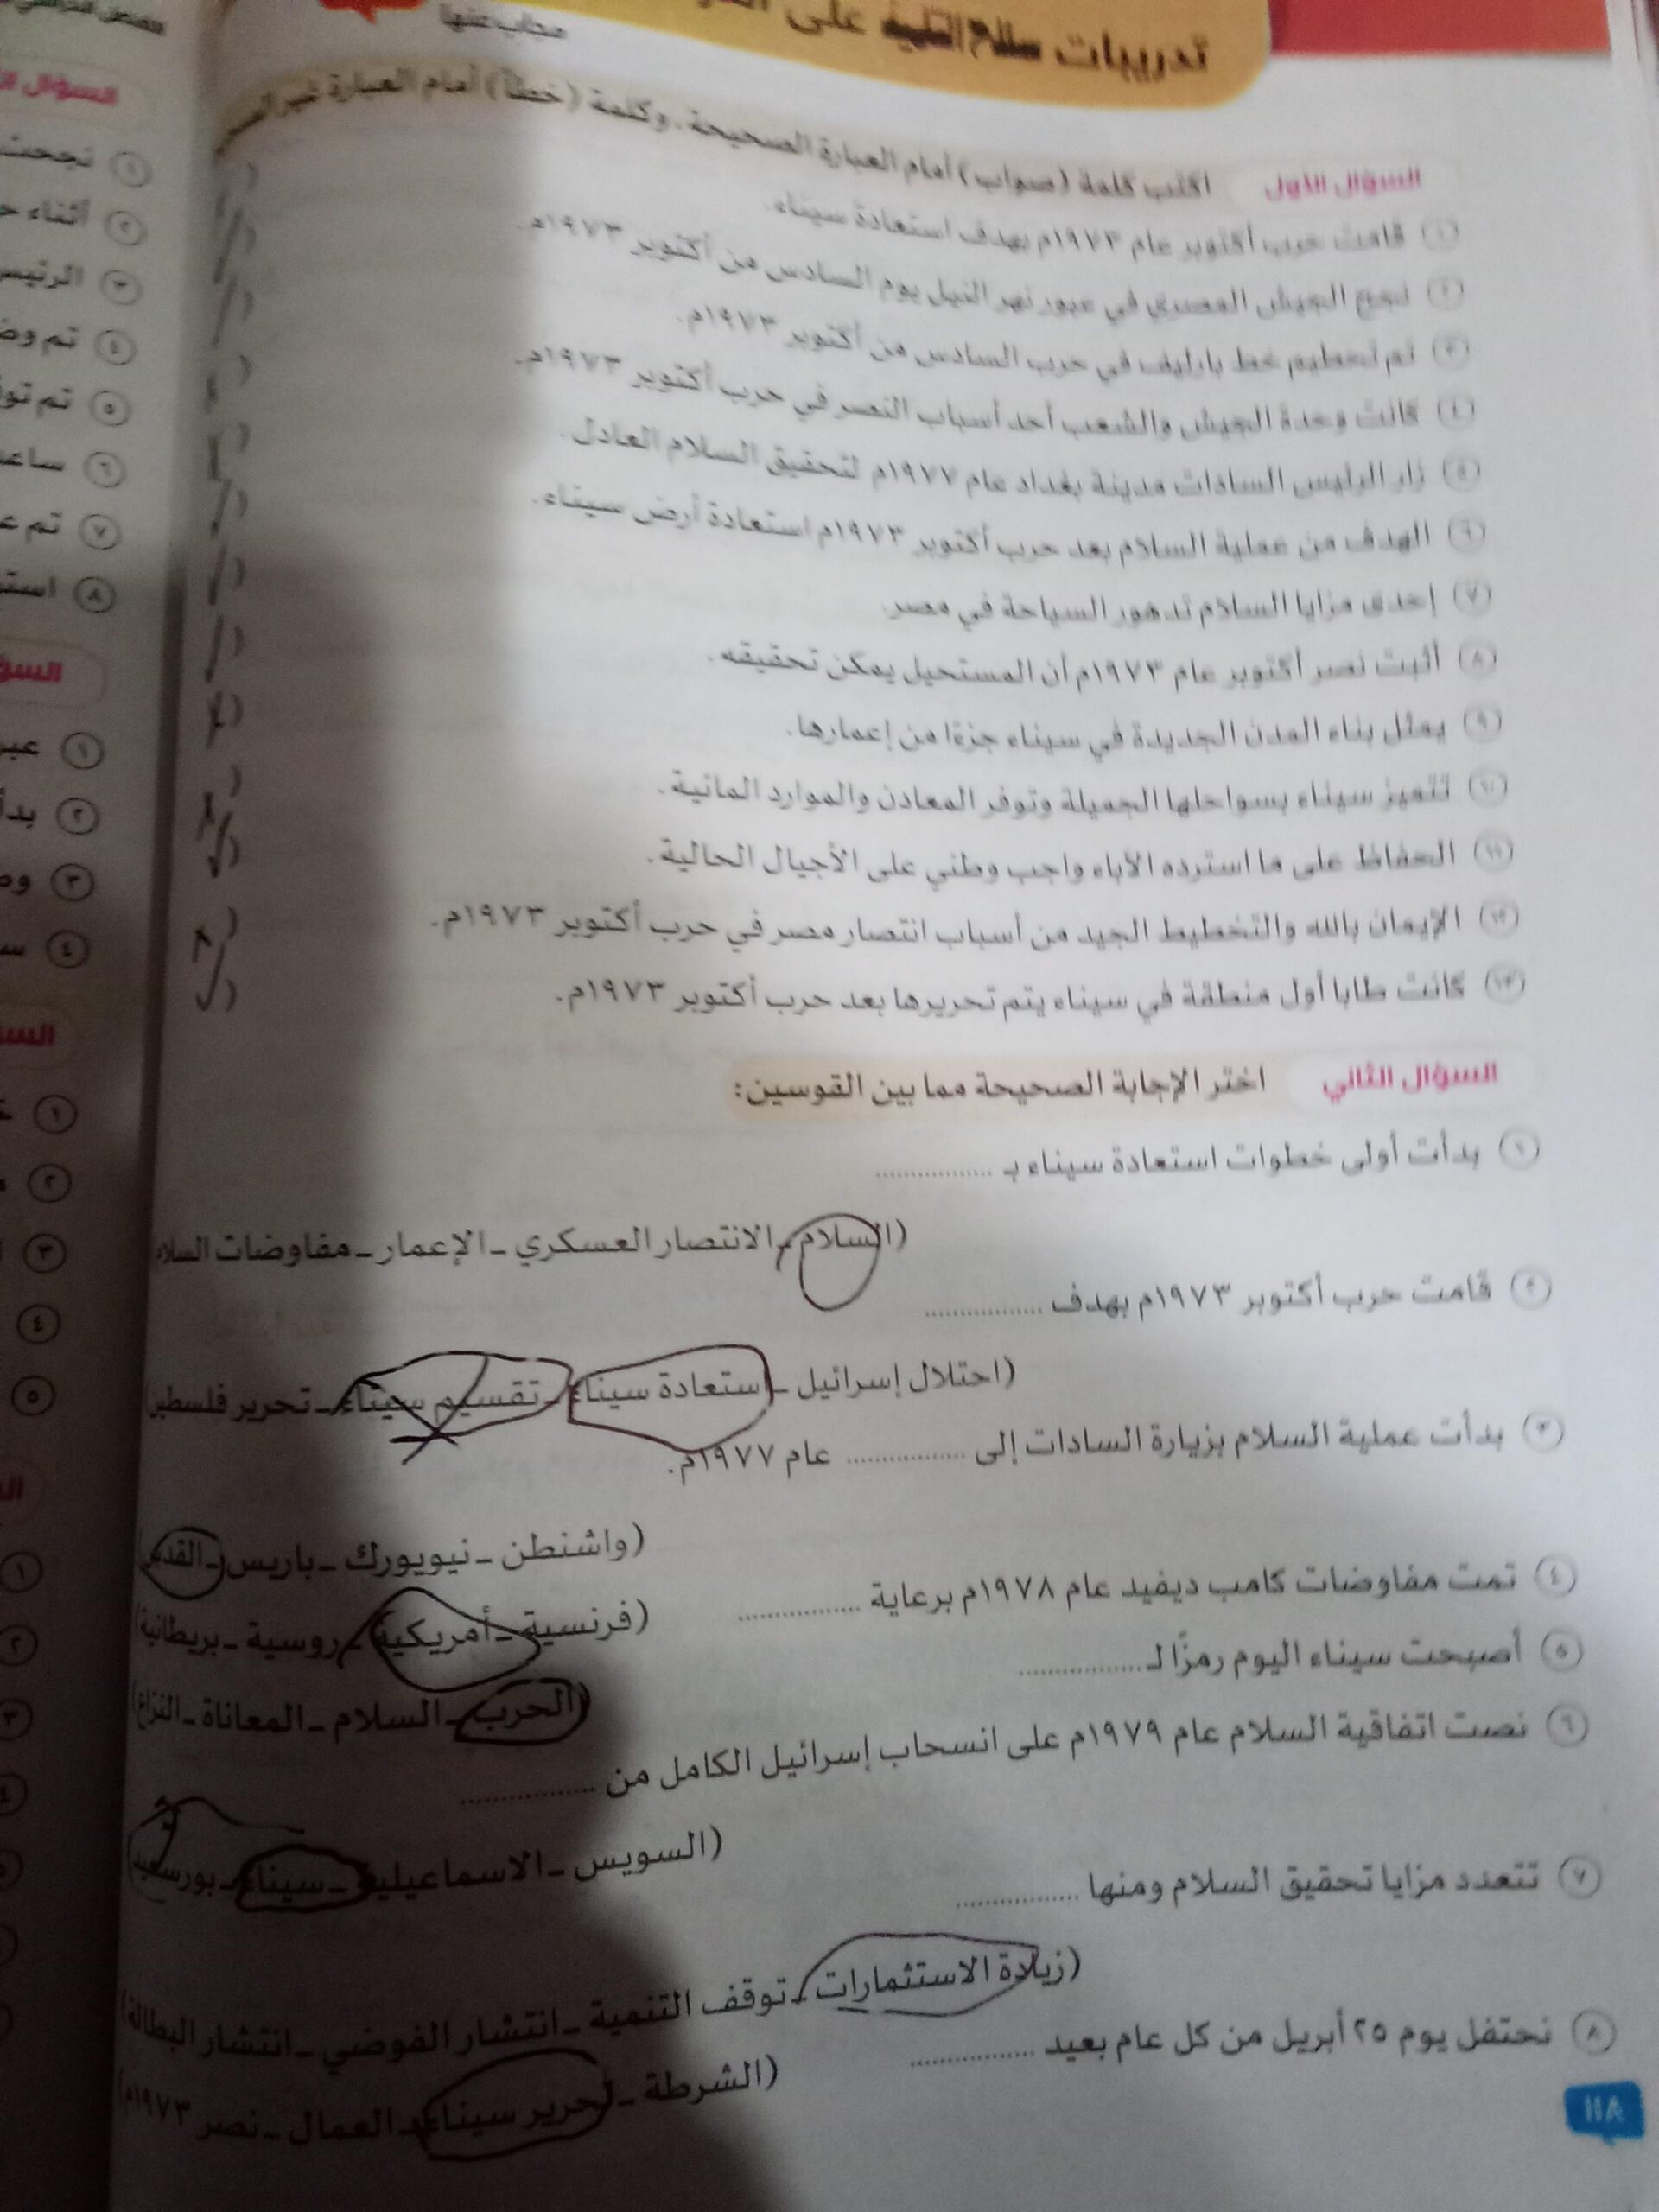 تدريبات سلاح التلميذ على
مجاب عنها
السؤال الأول اكتب كلمة (صواب) أمام العبارة الصحيحة، وكلمة (خطأ) أمام العبارة غير
١ قامت حرب أكتوبر عام ١٩٧٣م بهدف استعادة سيناء.
٢ نجح الجيش المصري في عبور نهر النيل يوم السادس من أكتوبر ١٩٧٣م.
٣ تم تحطيم خط بارليف في حرب السادس من أكتوبر ١٩٧٣م.
٤ كانت وحدة الجيش والشعب أحد أسباب النصر في حرب أكتوبر ١٩٧٣م.
٥ زار الرئيس السادات مدينة بغداد عام ١٩٧٧م لتحقيق السلام العادل.
٦ الهدف من عملية السلام بعد حرب أكتوبر ١٩٧٣م استعادة أرض سيناء.
٧ إحدى مزايا السلام تدهور السياحة في مصر.
٨ أثبت نصر أكتوبر عام ١٩٧٣م أن المستحيل يمكن تحقيقه.
٩ يمثل بناء المدن الجديدة في سيناء جزءًا من إعمارها.
١٠ تتميز سيناء بسواحلها الجميلة وتوفر المعادن والموارد المائية.
١١ الحفاظ على ما استرده الآباء واجب وطني على الأجيال الحالية.
١٢ الإيمان بالله والتخطيط الجيد من أسباب انتصار مصر في حرب أكتوبر ١٩٧٣م.
١٣ كانت طابا أول منطقة في سيناء يتم تحريرها بعد حرب أكتوبر ١٩٧٣م.
السؤال الثاني اختر الإجابة الصحيحة مما بين القوسين:
١ بدأت أولى خطوات استعادة سيناء بـ ................
(السلام - الانتصار العسكري - الإعمار - مفاوضات السلام
٢ قامت حرب أكتوبر ١٩٧٣م بهدف ................
(احتلال إسرائيل - استعادة سيناء - تقسيم سيناء - تحرير فلسطين
٣ بدأت عملية السلام بزيارة السادات إلى ................ عام ١٩٧٧م.
(واشنطن - نيويورك - باريس - القدس
٤ تمت مفاوضات كامب ديفيد عام ١٩٧٨م برعاية ................
(فرنسية - أمريكية - روسية - بريطانية)
٥ أصبحت سيناء اليوم رمزًا لـ ................
(الحرب - السلام - المعاناة - النزاع)
٦ نصت اتفاقية السلام عام ١٩٧٩م على انسحاب إسرائيل الكامل من ................
(السويس - الاسماعيلية - سيناء - بورسعيد)
٧ تتعدد مزايا تحقيق السلام ومنها ................
(زيادة الاستثمارات - توقف التنمية - انتشار الفوضي - انتشار البطالة)
٨ نحتفل يوم ٢٥ أبريل من كل عام بعيد ................
(الشرطة - تحرير سيناء - العمال - نصر ١٩٧٣م)
١١٨
السؤال
١ نجحت
٢ أثناء
٣ الرئيس
٤ تم
٥ تم
٦
٧ تم
٨
١
٢
٣
٤
١
٢
٣
٤
٥
١
٢
٣